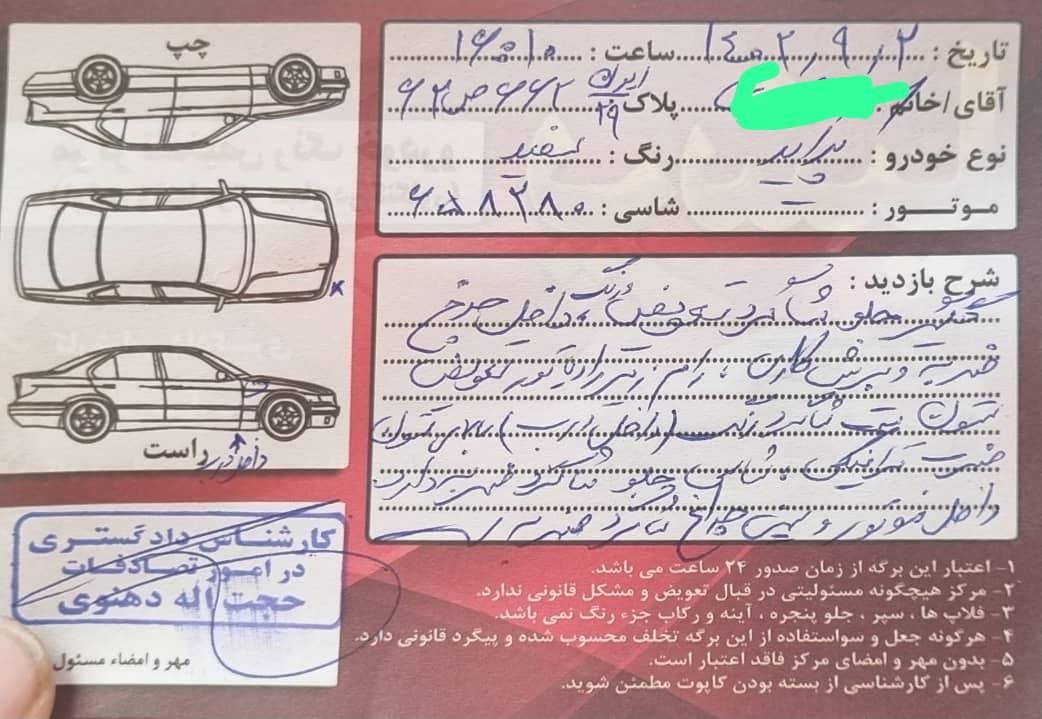 چپ
راست
تاریخ : ۱۴۰۲/۹/۲ ساعت : ۱۶:۱۰
آقای/خانم پلاک : ایران ۲۹ ۶۶۲ ص ۶۲
نوع خودرو : پراید رنگ : سفید
موتور : شاسی :
شرح بازدید :
گلگیر جلو شاگرد تعویض رنگ، داخل چرخ
ضربه و برش کاری، رام زیر رادیاتور تعویض
ستون شاگرد رنگ (داخل درب) بالای ستون
شاسی جلو شاگرد ضربه دارد
داخل موتور و شاگرد
کارشناس دادگستری
در امور تصادفات
حجت اله دهنوی
مهر و امضاء مسئول
۱- اعتبار این برگه از زمان صدور ۲۴ ساعت می باشد.
۲- مرکز هیچگونه مسئولیتی در قبال تعویض و مشکل قانونی ندارد.
۳- فلاپ ها ، سپر ، جلو پنجره ، آینه و رکاب جزء رنگ نمی باشد.
۴- هرگونه جعل و سواستفاده از این برگه تخلف محسوب شده و پیگرد قانونی دارد.
۵- بدون مهر و امضای مرکز فاقد اعتبار است.
۶- پس از کارشناسی از بسته بودن کاپوت مطمئن شوید.